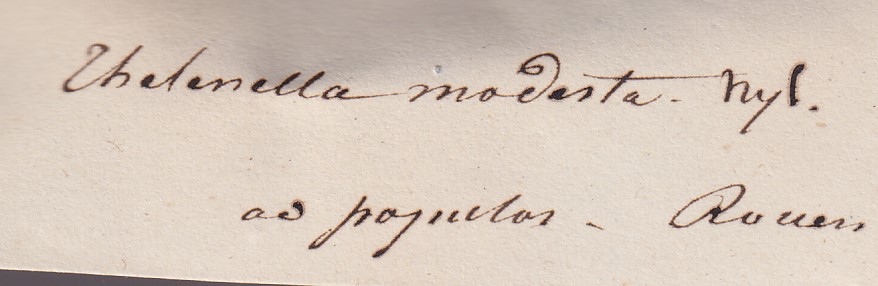 Thelenella modesta - Nyl.
ad populos - Rouen